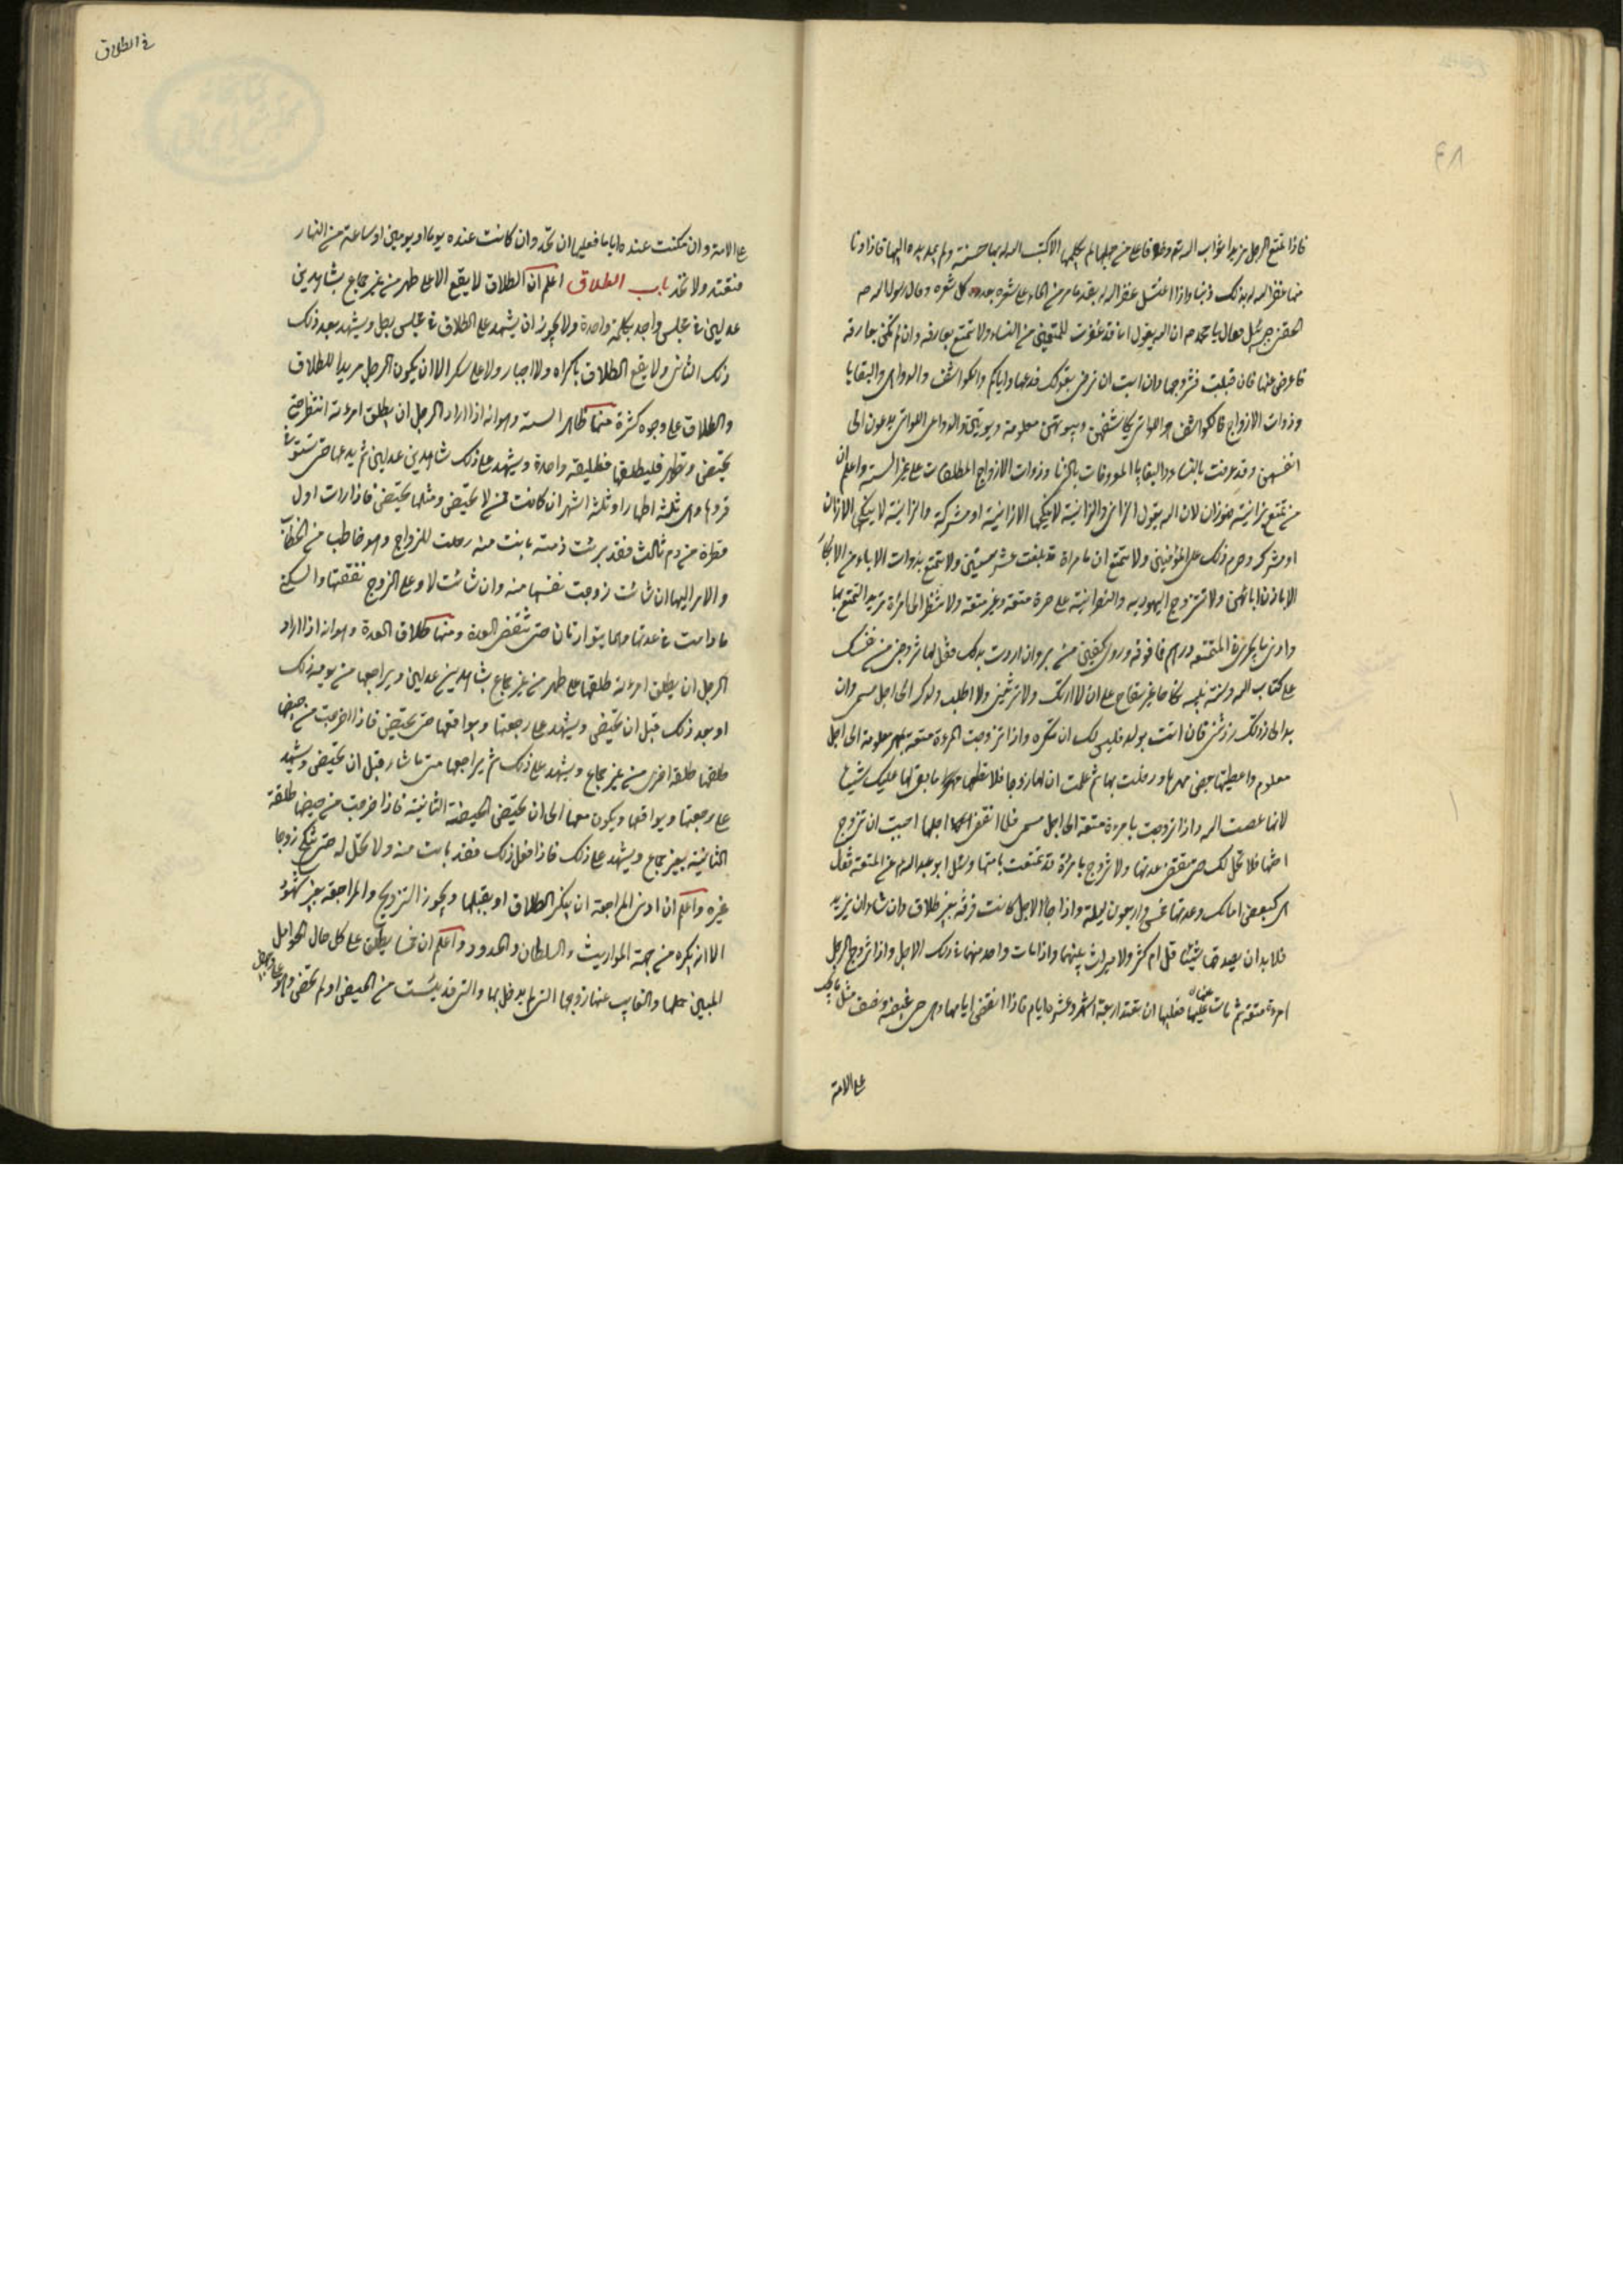 فاذا تمتع الرجل مريدا ثواب الله تع وخلافا على من جهلها لم يكلمها الا كتب الله له بها حسنة ولم يمد يده اليها فاذا دنا
منها غفر الله له بذلك ذنبا واذا اغتسل غفر الله له بقدر ما مر من الماء على شعره بعدد كل شعره وقال رسول الله ص
لحقني جبرئيل فقال يا محمد ص ان الله يقول انا قد غفرت للمتمتعين من النساء ولا تتمتع بعارفة وان لم تكن بعارفة
فاعرض عليها فان قبلت فتزوجها وان ابت ان ترضى بقولك فدعها واياكم والكواشف والدواعى والبغايا
وذوات الازواج فالكواشف هن اللواتى يكاشفهن وبيوتهن معلومة ويؤتين والدواعى اللواتى يدعون الى
انفسهن وقد عرفت بالفساد والبغايا المعروفات بالزنا وذوات الازواج المطلقات على غير السنة واعلم ان
من تمتع بزانية فهو زان لان الله يقول الزانى والزانية لا ينكحها الا زانية او مشركة والزانية لا ينكحها الا زان
او مشرك وحرم ذلك على المؤمنين ولا تتمتع ان بامراة قد بلغت عشر سنين ولا تتمتع بذوات الاباء من الابكار
الا باذن ابائهن ولا تتزوج اليهودية والنصرانية على حرة متعة وغير متعة ولا تنظر الى امرأة تريد التمتع بها
وادنى ما يجزى المتمتعة درهم فما فوقه وروى كفين من بر وان اردت ذلك فقل لها تزوجنى من نفسك
على كتاب الله وسنة نبيه نكاحا غير سفاح على ان لا ارثك ولا ترثينى ولا اطلب ولدك الى اجل مسمى وان
بدا لى زدتك وزدتنى فان اتت بولد فليس لك ان تنكره واذا تزوجت المرءة متعة بمهر معلومة الى اجل
معلوم واعطيتها بعض مهرها ودخلت بها ثم علمت ان لها زوجا فلا تعطها مما بقى لها عليك شيئا
لانها عصت الله واذا تزوجت بامرءة متعة الى اجل مسمى فلما انقضى اجلها احببت ان تزوج
اختها فلا تحل لك حتى تنقضى عدتها ولا تتزوج بامرئة قد تمتعت بامها وسئل ابو عبد الله ع عن المتعة فقال
هى كبعض امائك وعدتها خمس واربعون ليلة واذا جاء الاجل كانت فرقة بغير طلاق وان شاء ان يزيد
فلا بد ان يصدقها شيئا قل ام كثر ولا ميراث بينهما واذا مات واحد منهما فى ذلك الاجل واذا تزوج الرجل
امرءة متعة ثم مات عنها فعليها ان تعتد اربعة اشهر وعشرة ايام فاذا انقضى ايامها وهو حى فحيضة ونصف مثل ما يجب
على الامة
فى الطلاق
على الامة وان مكثت عنده اياما فعليها ان تحد وان كانت عنده يوما او يومين او ساعة من النهار
فتعتد ولا تحد باب الطلاق اعلم ان الطلاق لا يقع الا على طهر من غير جماع بشاهدين
عدلين فى مجلس واحد بكلمة واحدة ولا يجوز ان يشهد على الطلاق فى مجلس رجل ويشهد بعد ذلك
ذلك الثانى ولا يقع الطلاق باكراه ولا اجبار ولا على سكر الا ان يكون الرجل مريدا للطلاق
والطلاق على وجوه كثيرة منها طلاق السنة وهو انه اذا اراد الرجل ان يطلق امرءته انتظر حتى
تحيض وتطهر فليطلقها تطليقة واحدة ويشهد على ذلك شاهدين عدلين ثم يدعها حتى تستوفى
قروءها وهى ثلثة اطهار او ثلثة اشهر ان كانت ممن لا تحيض ومثلها تحيض فاذا رات اول
قطرة من دم ثالث فقد برئت ذمته بانت منه وحلت للزواج وهو خاطب من الخطاب
والامر اليها ان شائت زوجت نفسها منه وان شائت لا وعلى الزوج نفقتها والسكنى
ما دامت فى عدتها وهما يتوارثان حتى تنقضى العدة ومنها طلاق العدة وهو انه اذا اراد
الرجل ان يطلق امرءته طلقها على طهر من غير جماع بشاهدين عدلين ويراجعها من يومه ذلك
او بعد ذلك قبل ان تحيض ويشهد على رجعتها ويواقعها حتى تحيض فاذا خرجت من حيضها
طلقها طلقة اخرى من غير جماع ويشهد على ذلك ثم يراجعها متى ما شاء قبل ان تحيض ويشهد
على رجعتها ويواقعها ويكون معها الى ان تحيض الحيضة الثانية فاذا خرجت من حيضها طلقة
الثانية بغير جماع ويشهد على ذلك فاذا فعل ذلك فقد بانت منه ولا تحل له حتى تنكح زوجا
غيره واعلم ان ادنى المراجعة ان ينكر الطلاق او يقبلها ويجوز التزويج والمراجعة بغير شهود
الا انه يكره من جهة المواريث والسلطان والحدود واعلم ان خمسا يطلقن على كل حال الحوامل
المبين حملها والغايب عنها زوجها التى لم يدخل بها والتى قد يئست من المحيض او لم تحض